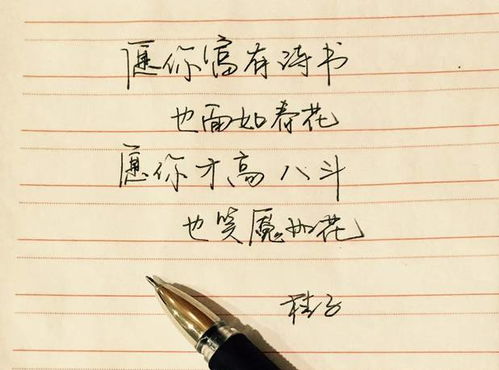 愿你富有诗书
也面如春花
愿你才高八斗
也笑魇如花
桂子